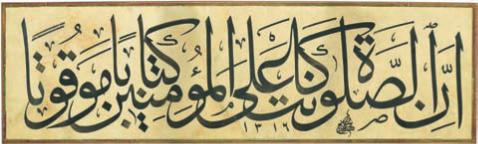 إن الصلوة كانت على المؤمنين كتابا موقوتا
١٣١٦